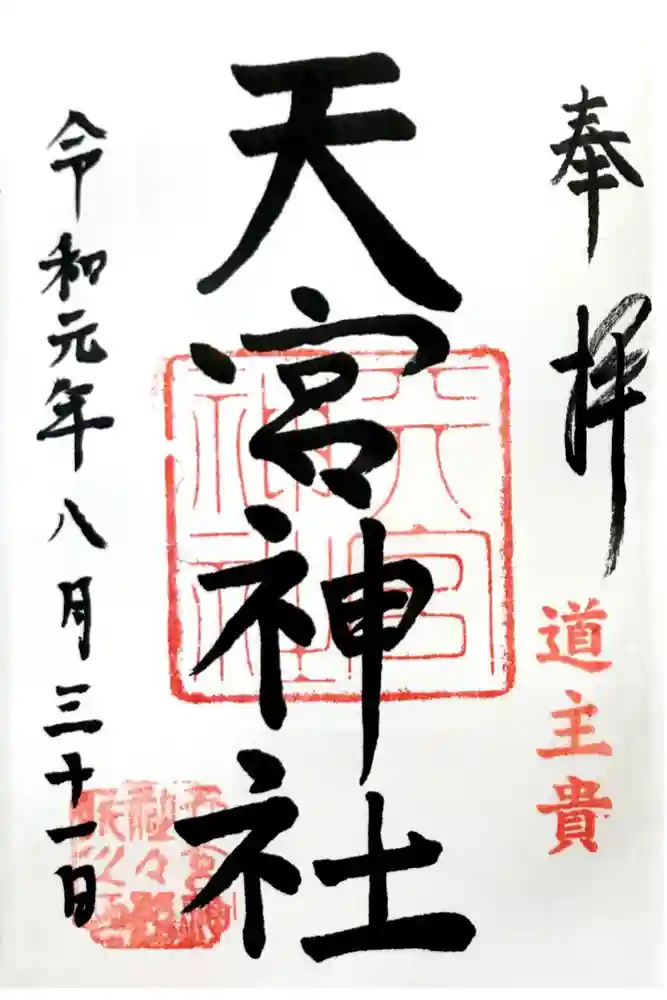 奉拝
道主貴
天宮神社
天宮神社
令和元年八月三十一日